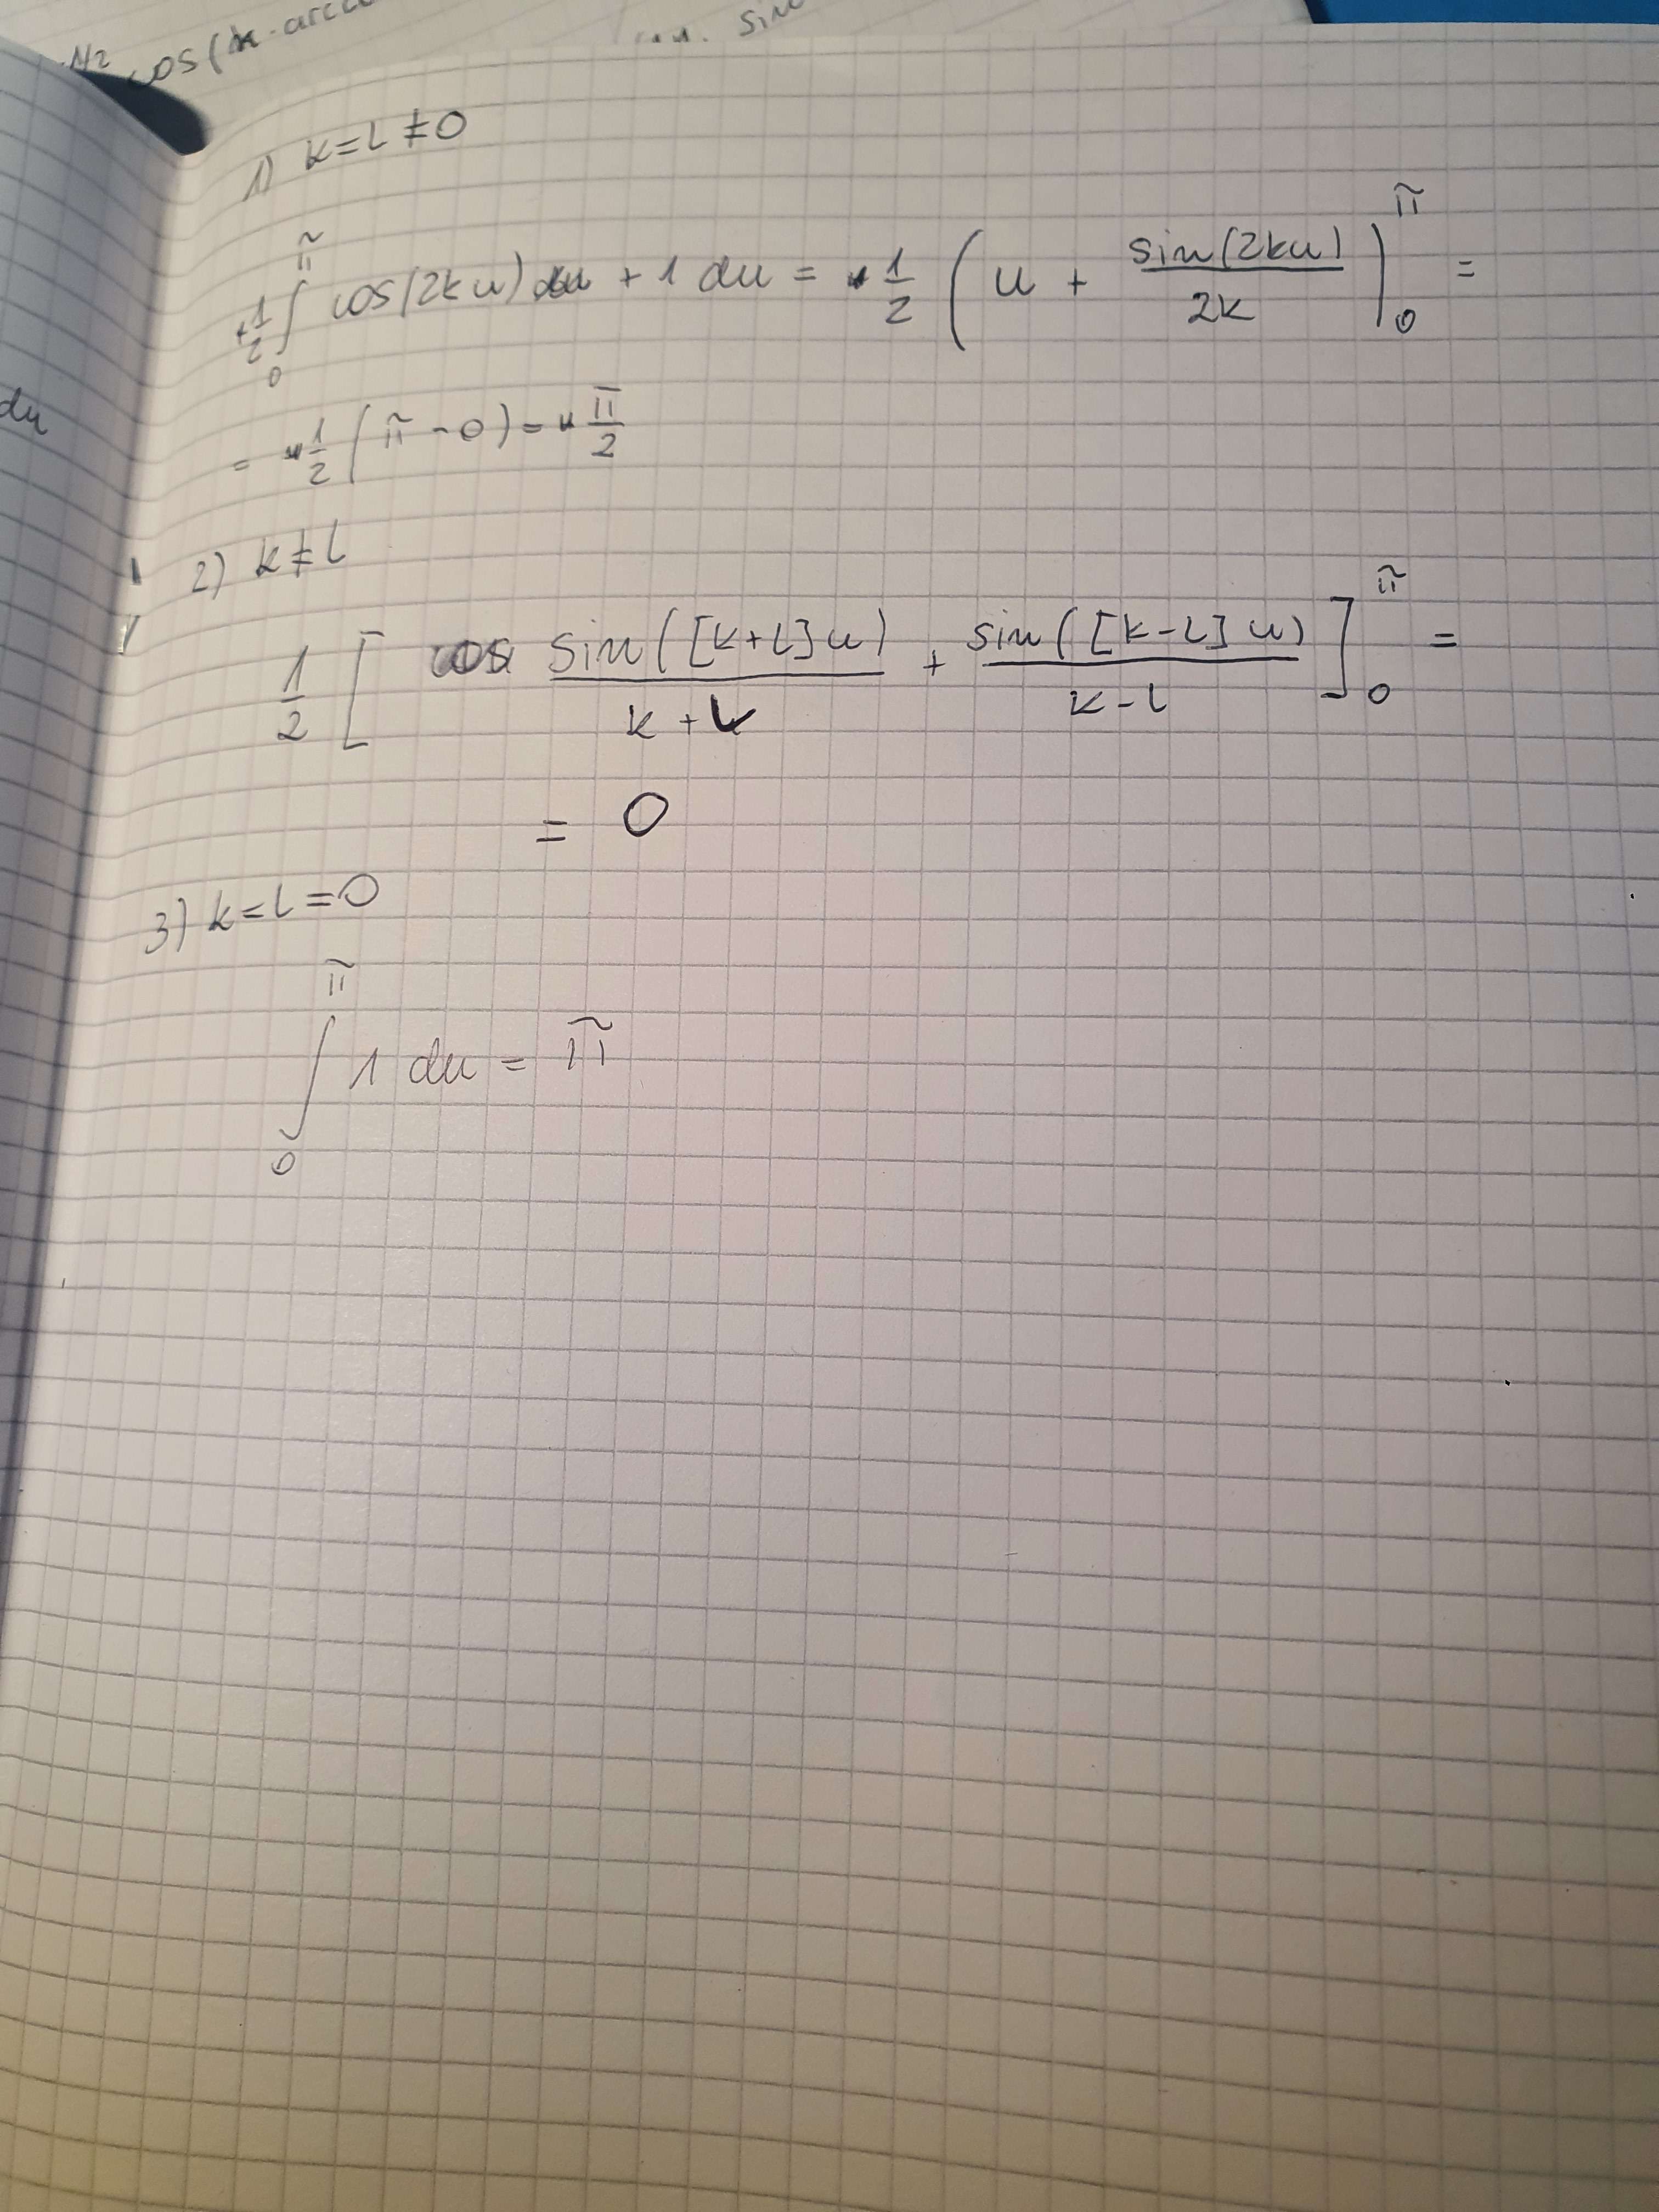 -1/2
cos(k·arcc
sin
1) k=l≠0
+1/2 ∫₀^π cos(2ku) + 1 du = 1/2 ( u + sin(2ku)/2k |₀^π =
du
= 1/2 (π-0) = π/2
2) k≠l
1/2 [ sin([k+l]u)/k+l + sin([k-l]u)/k-l ]₀^π =
= 0
3) k=l=0
∫₀^π 1 du = π